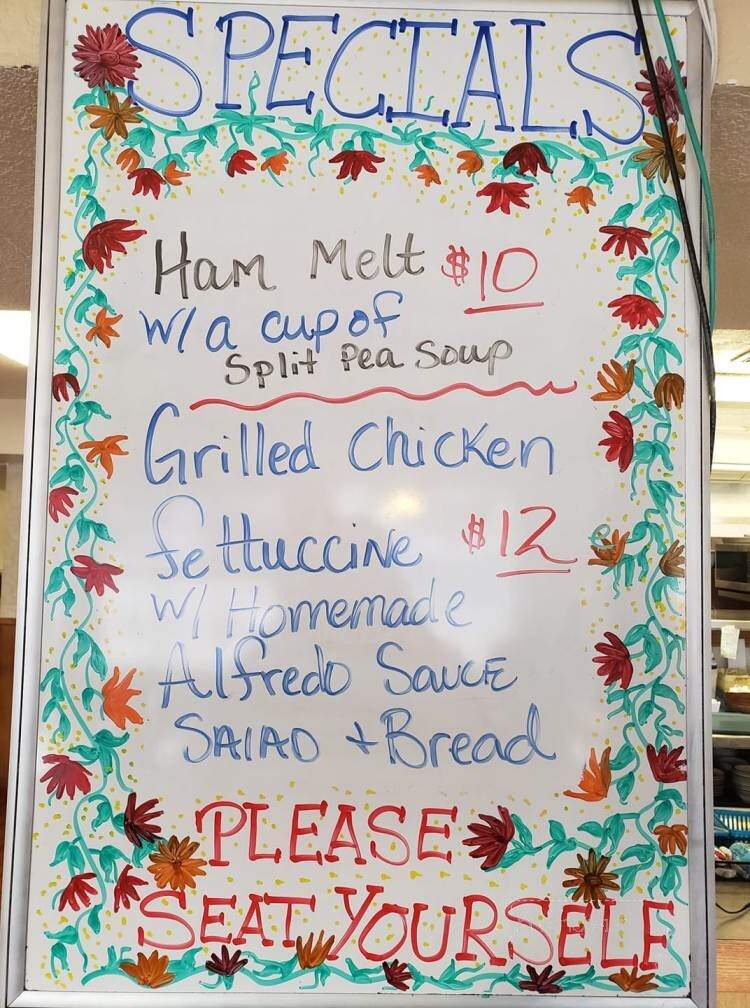 SPECIALS
Ham Melt $10
w/a cup of
Split Pea Soup
Grilled Chicken
fettuccine $12
w/ Homemade
Alfredo Sauce
SAlAD + Bread
PLEASE
SEAT YOURSELF